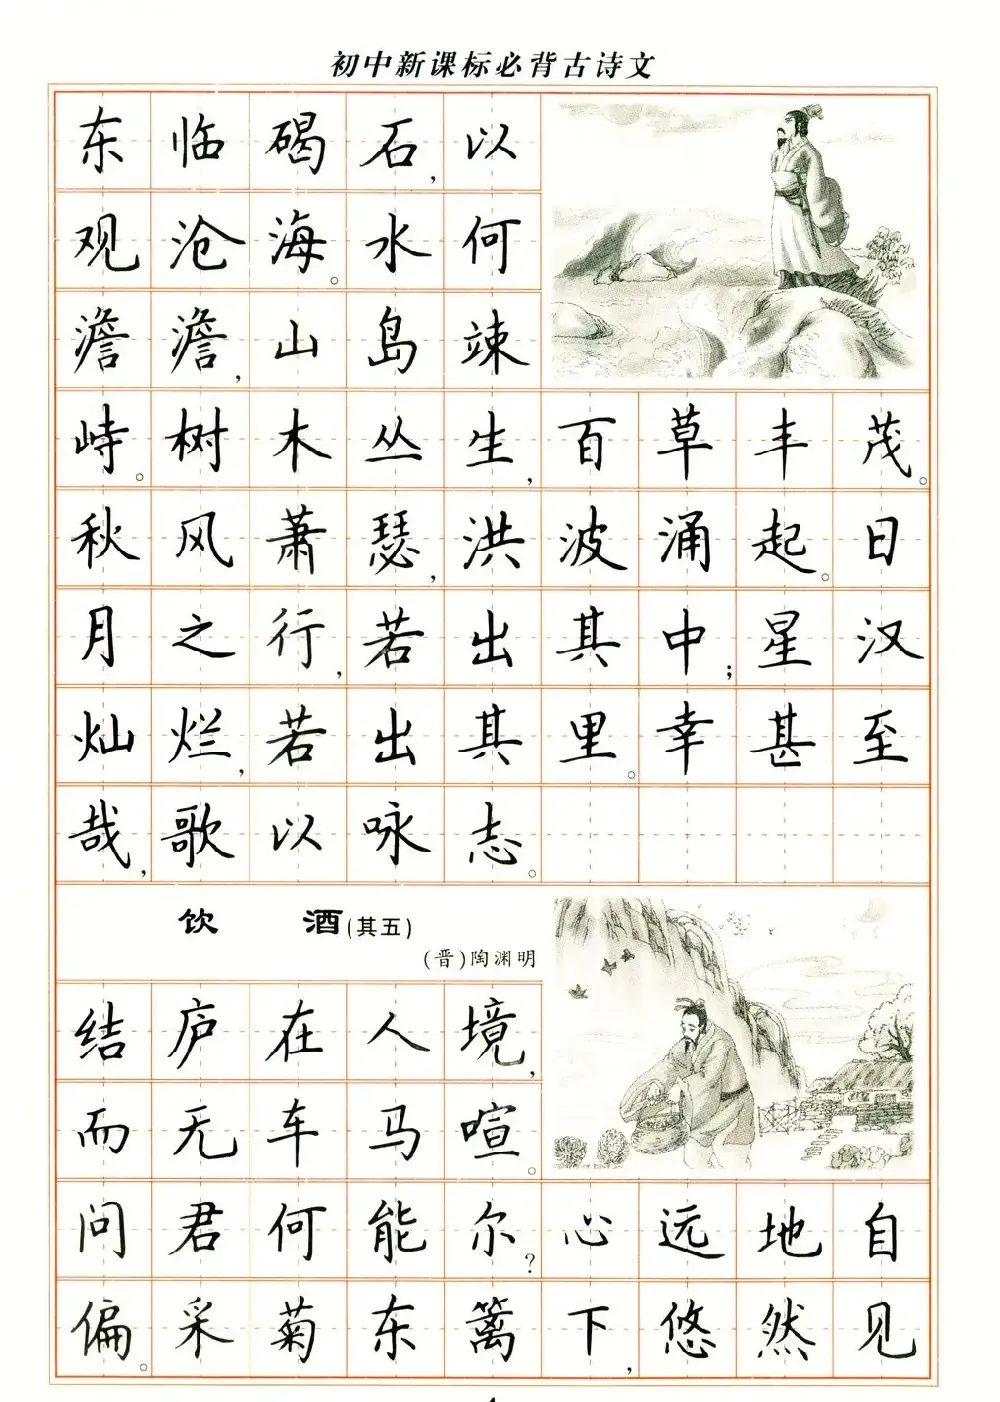 初中新课标必背古诗文
东临碣石，以
观沧海。水何
澹澹，山岛竦
峙。树木丛生，百草丰茂。
秋风萧瑟，洪波涌起。日
月之行，若出其中；星汉
灿烂，若出其里。幸甚至
哉，歌以咏志。
饮 酒(其五)
(晋)陶渊明
结庐在人境，
而无车马喧。
问君何能尔？心远地自
偏。采菊东篱下，悠然见